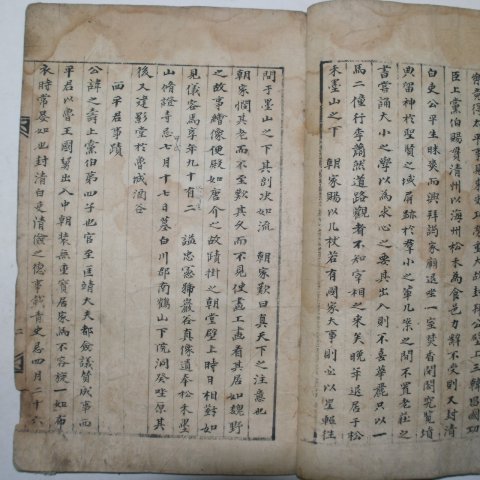 臣上黨伯賜貫清州以海州松禾爲食邑力辭不受則又封清
白吏公平生昧爽而興拜謁家廟退坐一室焚香閉閤究覧墳
典留神於聖賢之域屏跡於羣小之輩几案之間不置老莊之
書嘗誦大小之學以爲求心之要其出入則不喜華麗只以一
馬二僮行李蕭然道路觀者不知宰相之來矣晩年退居于松
禾墨山之下 朝家賜以几杖若有國家大事則必以星軺往
問于墨山之下其剖決如流 朝家歎曰真天下之注意也
朝家憫其老而不至歎其久而不見使畫工畫看其居如魏野
之故事繪像便殿如唐介之故蹟掛之朝堂壁上時日相對如
見儀容焉享年九十有二 謚忠憲 巖谷真像遺奉松禾墨
山脩證寺忌七月十七日墓白川郡南鶴山下院洞癸坐原其
後又建影堂於曹城酒谷
西平君事蹟
公諱之 上黨伯第四子也官至匡靖大夫都僉議贊成事而
平君以曹王國舅出入中朝装無重寳居家焉不容旋一如布
衣時常 如也封清白吏清儉之德事載青史忌四月二十六